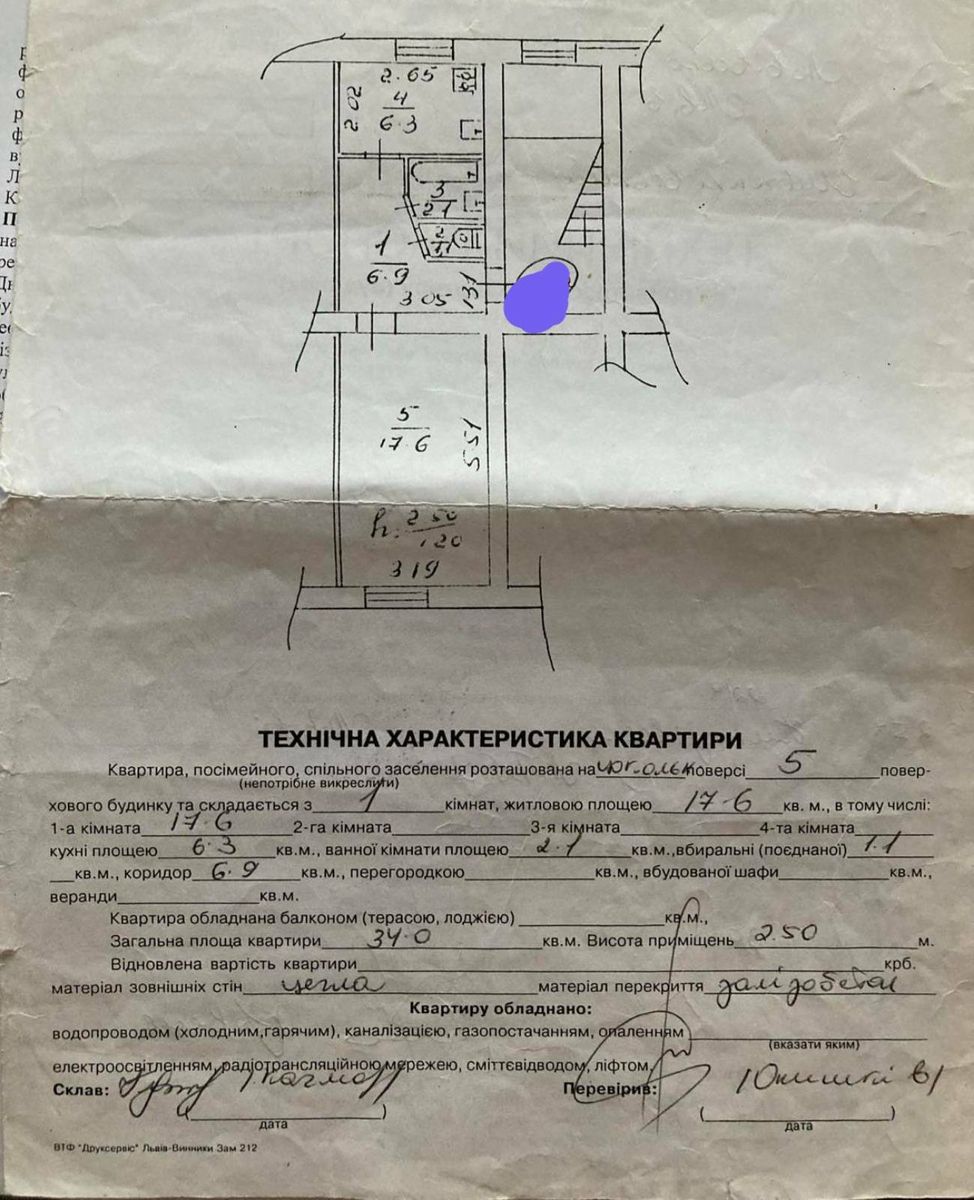 2.65
2.02
4
6.3
3
2.1
2
1.1
1
6.9
3.05
1.31
5
17.6
5.51
h. 2.50
1.20
3.19
ТЕХНІЧНА ХАРАКТЕРИСТИКА КВАРТИРИ
Квартира, посімейного, спільного заселення розташована на поверсі 5 повер-
(непотрібне викреслити)
хового будинку та складається з 1 кімнат, житловою площею 17.6 кв. м., в тому числі:
1-а кімната 17.6 2-га кімната 3-я кімната 4-та кімната
кухні площею 6.3 кв.м., ванної кімнати площею 2.1 кв.м.,вбиральні (поєднаної) 1.1
кв.м., коридор 6.9 кв.м., перегородкою кв.м., вбудованої шафи кв.м.,
веранди кв.м.
Квартира обладнана балконом (терасою, лоджією) кв.м.,
Загальна площа квартири 34.0 кв.м. Висота приміщень 2.50 м.
Відновлена вартість квартири крб.
матеріал зовнішніх стін цегла матеріал перекриття
Квартиру обладнано:
водопроводом (холодним,гарячим), каналізацією, газопостачанням, опаленням
(вказати яким)
електроосвітленням, радіотрансляційною мережею, сміттєвідводом, ліфтом,
Склав: Перевірив:
дата дата
ВТФ "Друксервіс" Львів-Винники Зам 212